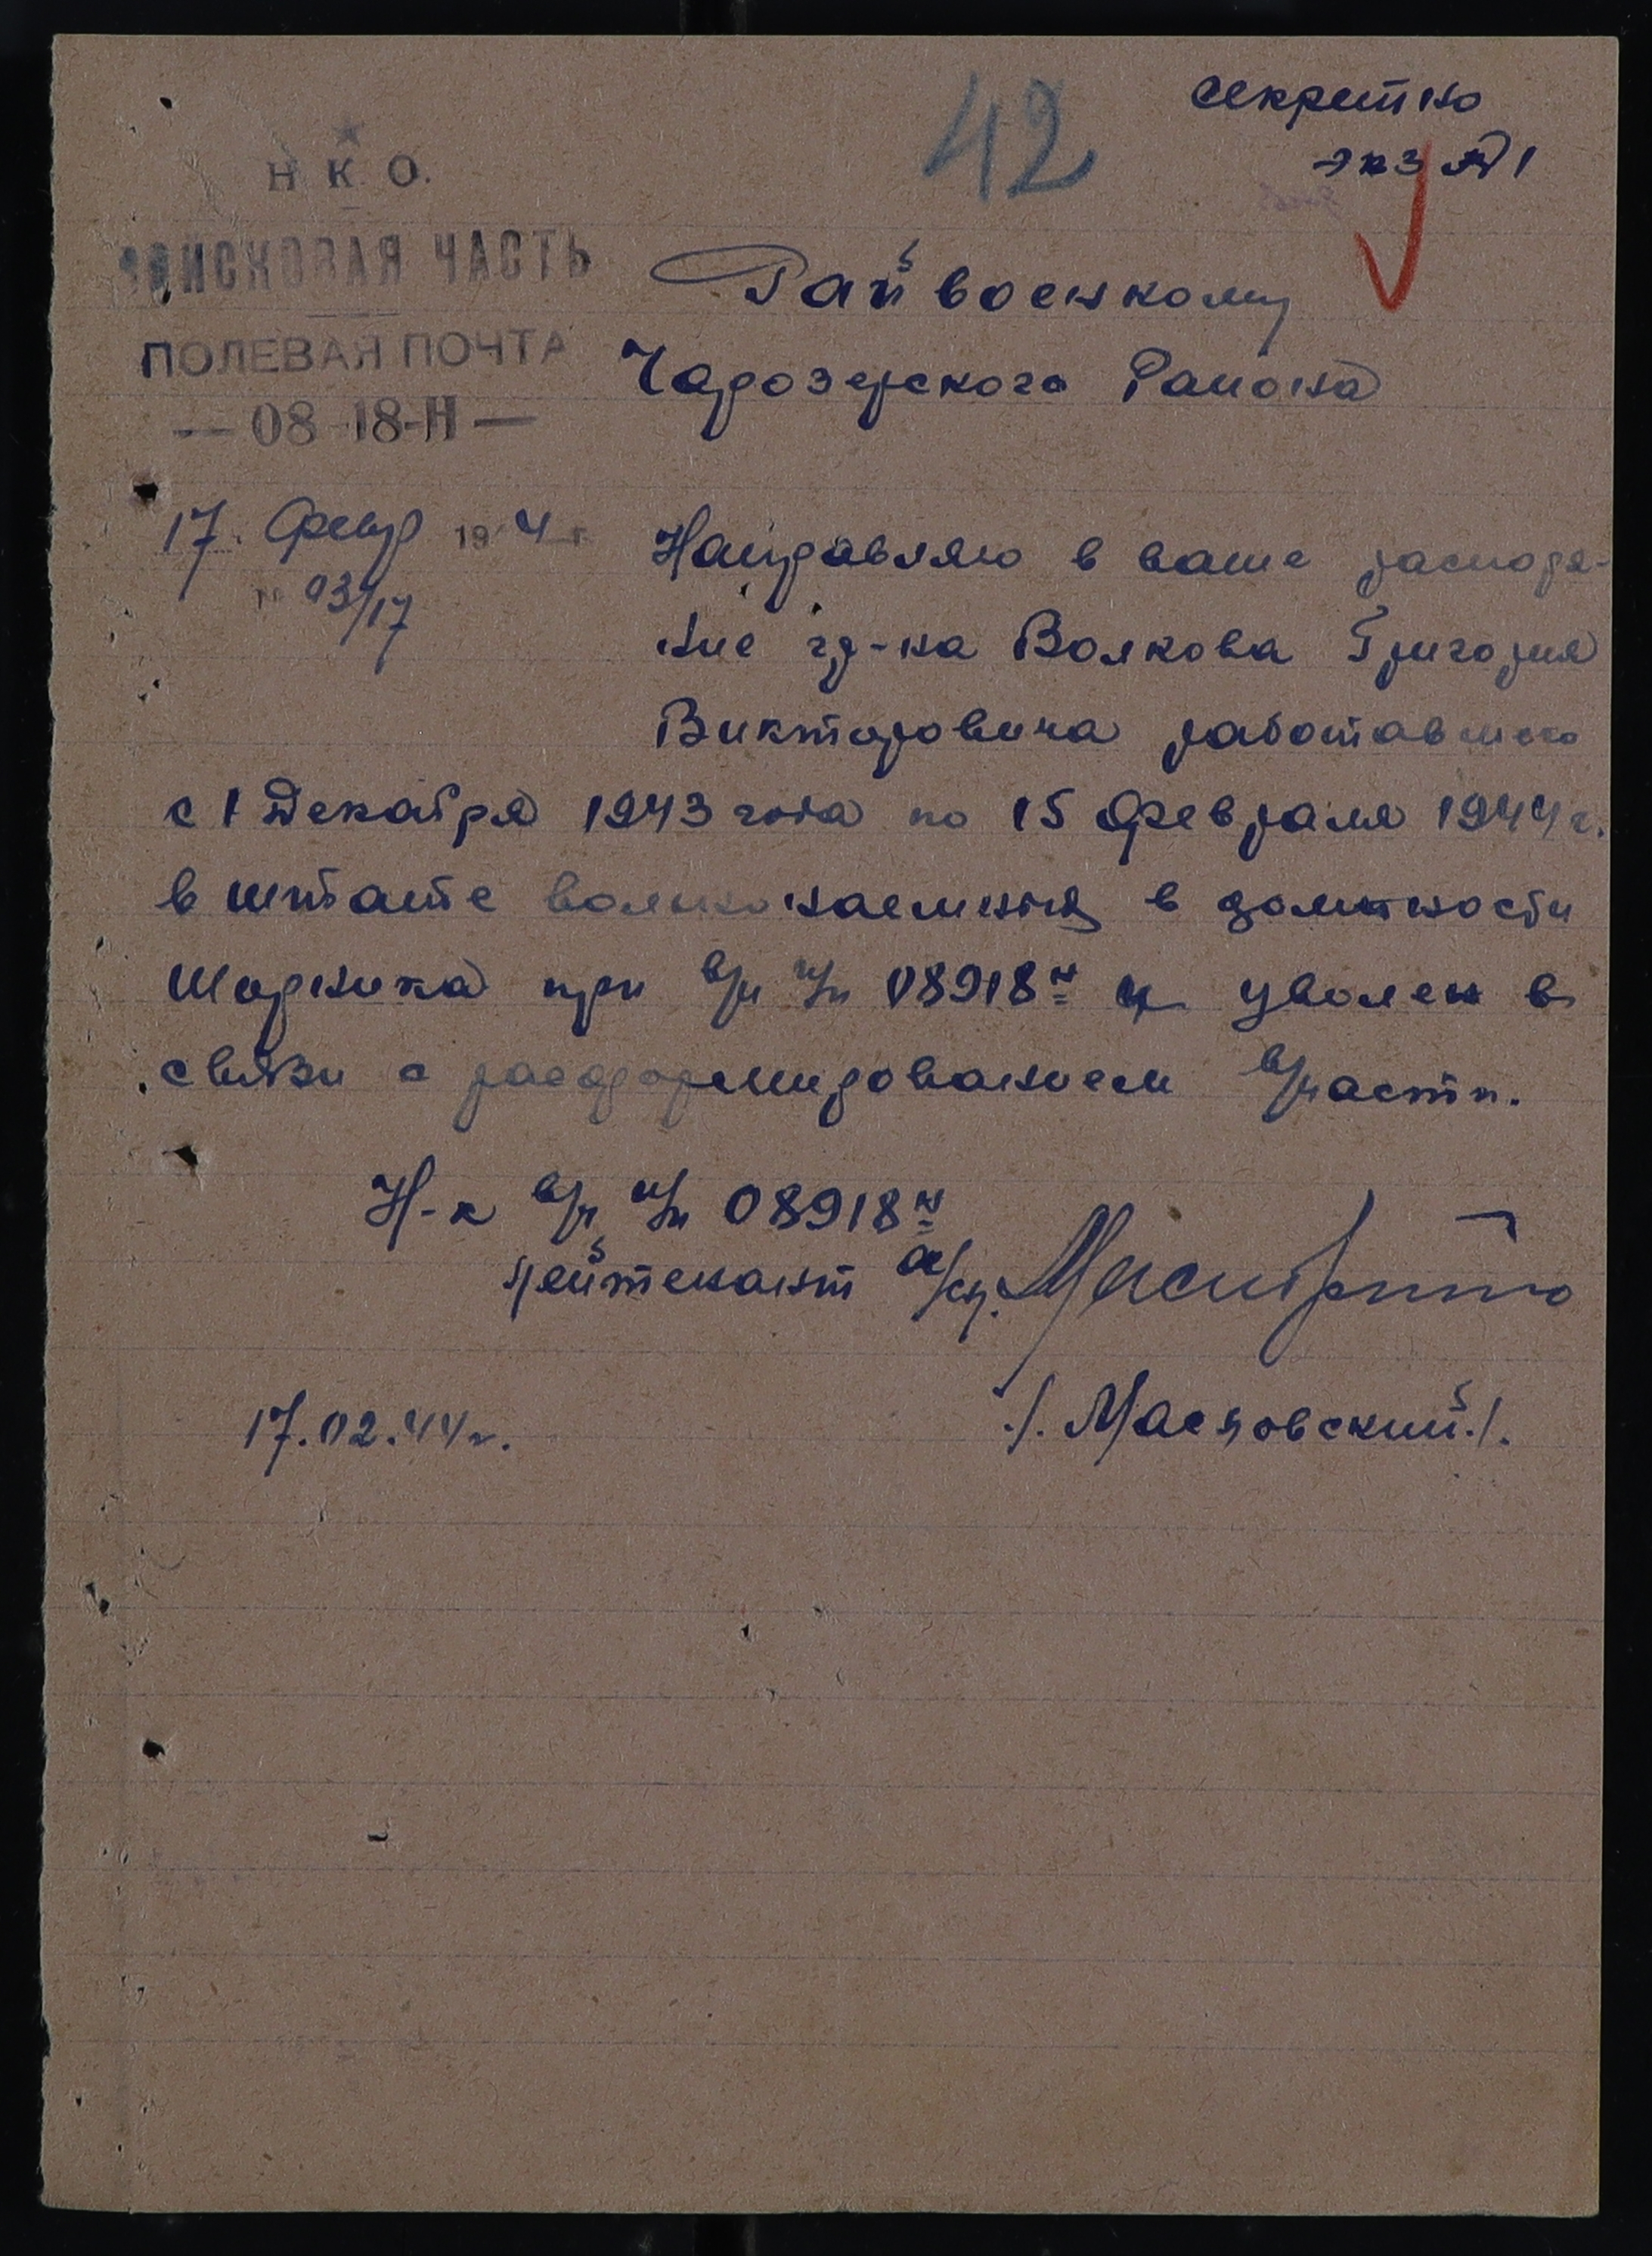 42
секретно
экз № 1
Н К О.
ВОЙСКОВАЯ ЧАСТЬ
ПОЛЕВАЯ ПОЧТА
— 08 18-Н —
Райвоенкому
Чарозерского Района
17 Февр 194 4 г
№ 03/17
Направляю в ваше распоря-
ние гр-на Волкова Григория
Викторовича работавшего
с 1 Декабря 1943 года по 15 Февраля 1944 г.
в штате вольнонаемных в должности
Шорника при в/ч п/п 08918н и уволен в
связи с расформированием в/части.
Н-к в/ч п/п 08918н
Лейтенант а/сл.
17.02.44 г.
/. Масловский./.